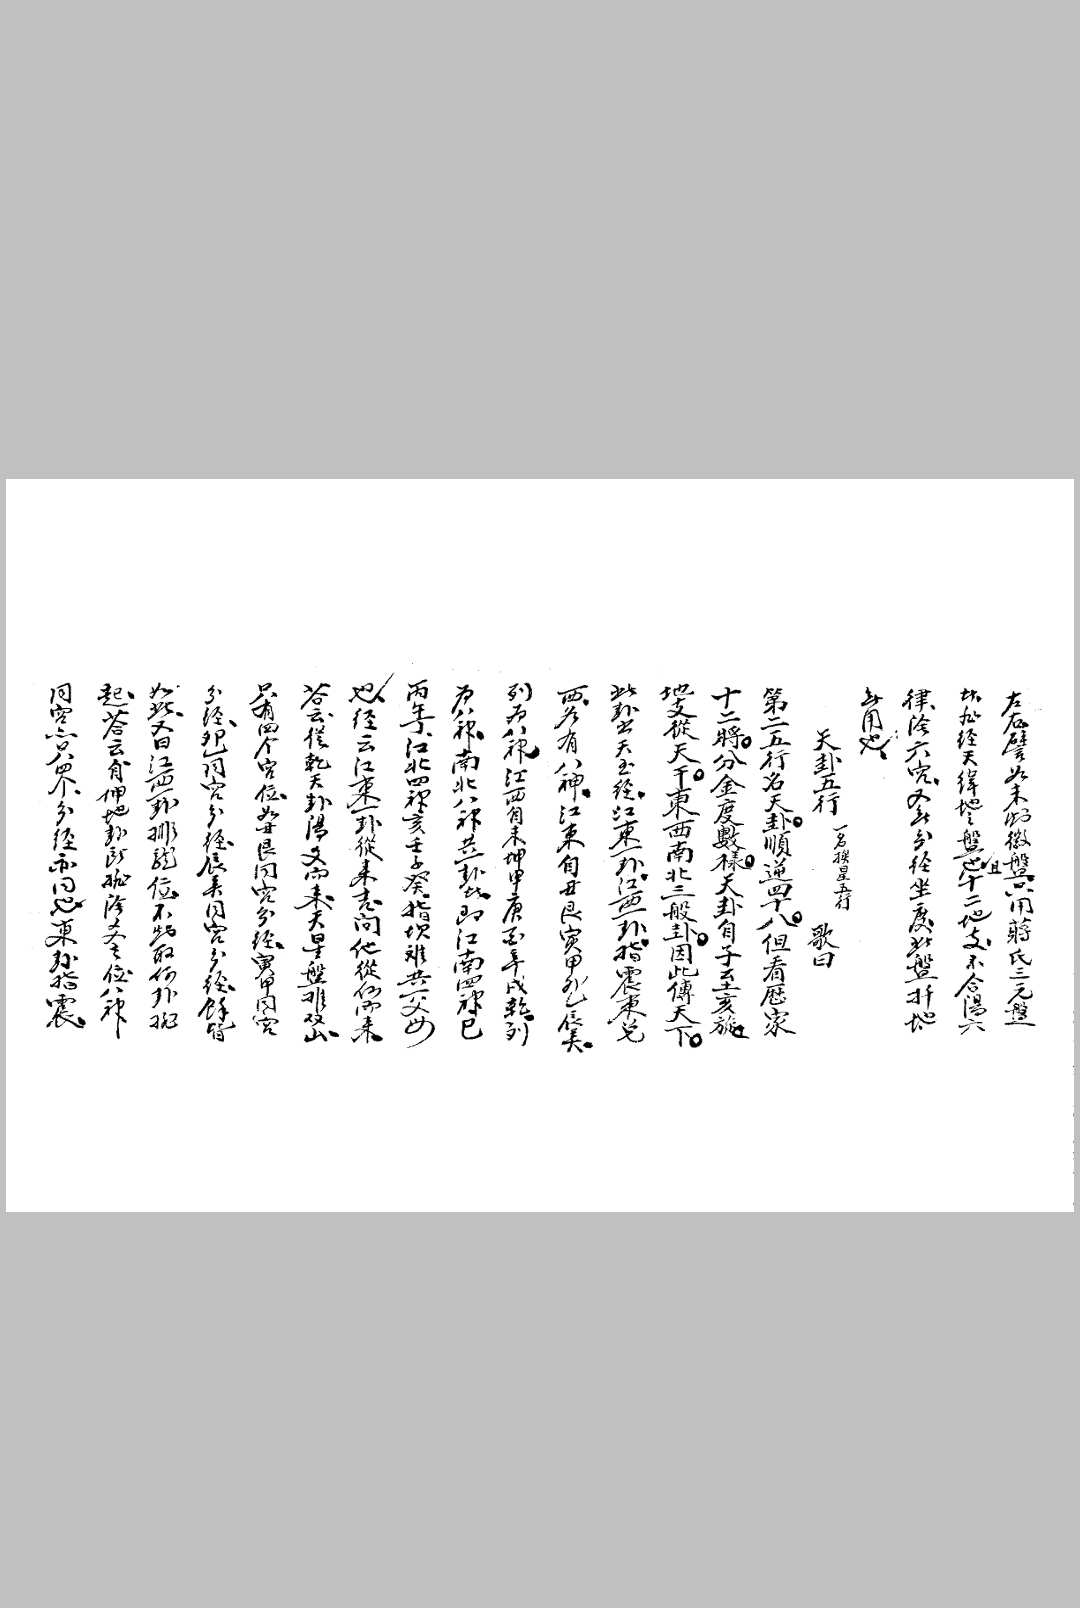 左右譬如未的徽盤只用蔣氏三元盤
此經天緯地之盤也且十二地支不合陽六
律陰六呂又無分經坐度此盤于地
無用也
天卦五行 一名挨星五行 歌曰
第二五行名天卦順逆四十八但看歷家
十二將分金度數樣天卦自子至亥旋
地支從天干東西南北三般卦因此傳天下
此卦出天玉經江東一卦江西一卦指震東兌
西各有八神江東自丑艮寅甲卯乙辰巽
列為八神江西自未坤申庚酉辛戌乾列
為八神南北八神共一卦此即江南四神巳
丙午丁江北四神亥壬子癸指坎離共一父母
也經云江東一卦從來吉問他從何而來
答云從乾天卦陽爻而來天星盤推双山
只有四个宮位如丑艮同宮分經寅甲同宮
分經卯乙同宮分經辰巽同宮分經餘皆
如此又曰江西一卦排龍位不知取何卦
起答云自坤地卦陰爻之位八神
同宮亦只四个分經亦同也東卦指震